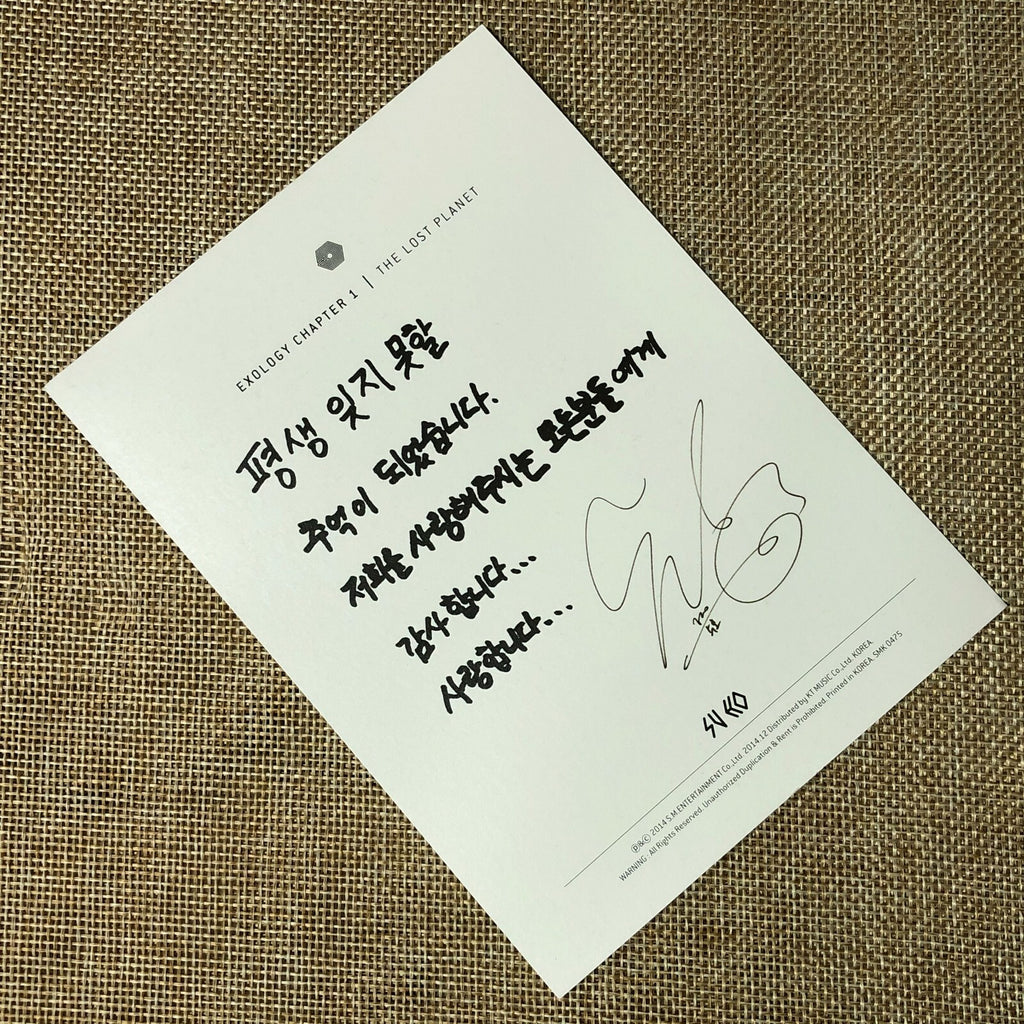 EXOLOGY CHAPTER 1 | THE LOST PLANET
평생 잊지 못할
추억이 되었습니다.
저희를 사랑해주시는 모든분들에게
감사합니다...
사랑합니다...
℗&© 2014 S.M.ENTERTAINMENT Co.,Ltd. 2014.12 Distributed by KT MUSIC Co.,Ltd. KOREA.
WARNING : All Rights Reserved. Unauthorized Duplication & Rent is Prohibited. Printed in KOREA. SMK 0475